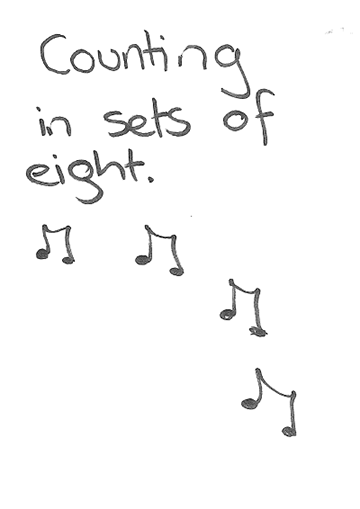 Counting
in sets of
eight.